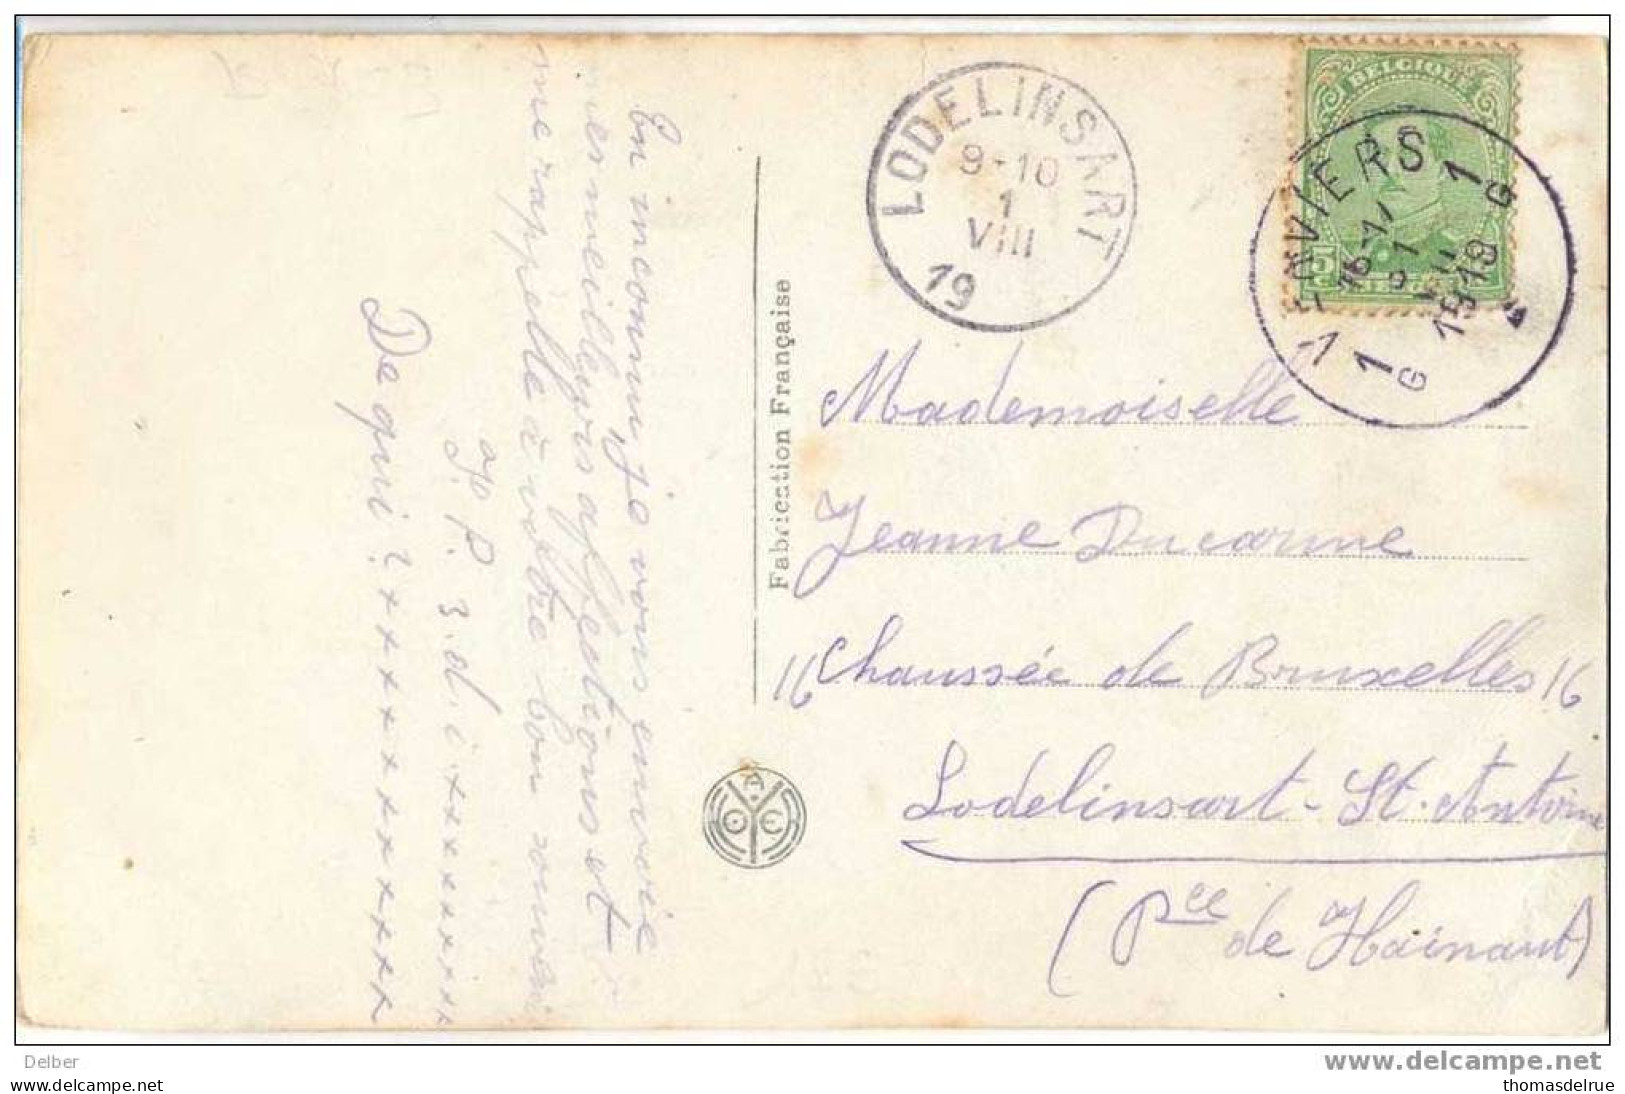 En inconnu, je vous envoie
mes meilleurs affections et
me rappelle à votre bon souvenir
P. 3. d. i x x x x x x x x
De qui ? x x x x x x x x x x x
Fabrication Française
LODELINSART
9-10
1
VIII
19
BELGIQUE
5
VERVIERS 1
16-17
1919
1
G
G
Mademoiselle
Jeanne Ducarme
16 Chaussée de Bruxelles 16
Lodelinsart - St. Antoine
(Pce de Hainaut)
Delber
www.delcampe.net
© All rights reserved
thomasdelrue